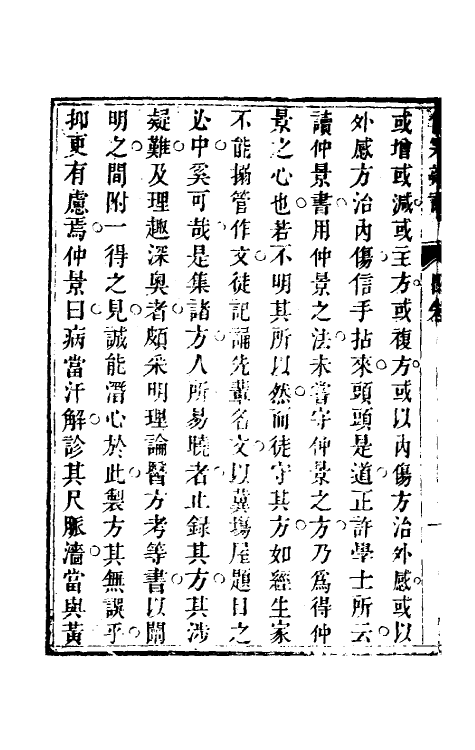 或增或減或主方或複方或以內傷方治外感或以
外感方治內傷信手拈來頭頭是道正許學士所云
讀仲景書用仲景之法未嘗守仲景之方乃爲得仲
景之心也若不明其所以然而徒守其方如經生家
不能搦管作文徒記誦先輩名文以冀塲屋題目之
必中奚可哉是集諸方人所易曉者止錄其方其涉
疑難及理趣深奥者頗采明理論醫方考等書以闡
明之間附一得之見誠能潛心於此製方其無誤乎
抑更有慮焉仲景曰病當汗解診其尺脈濇當與黃